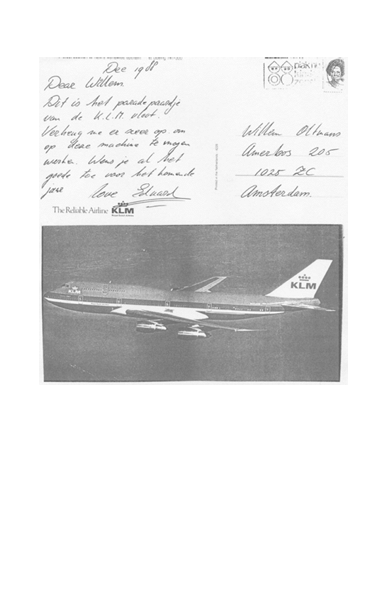 Dec 1988
Dear Willem
Dit is het paradepaardje
van de K.L.M vloot.
Verheug me er over op om
op deze machine te mogen
werken. Wens je al het
goede toe voor het komende
jaar Love Eduard
The Reliable Airline KLM
Willem Oltmans
Amerbos 205
1025 ZC
Amsterdam.
KLM